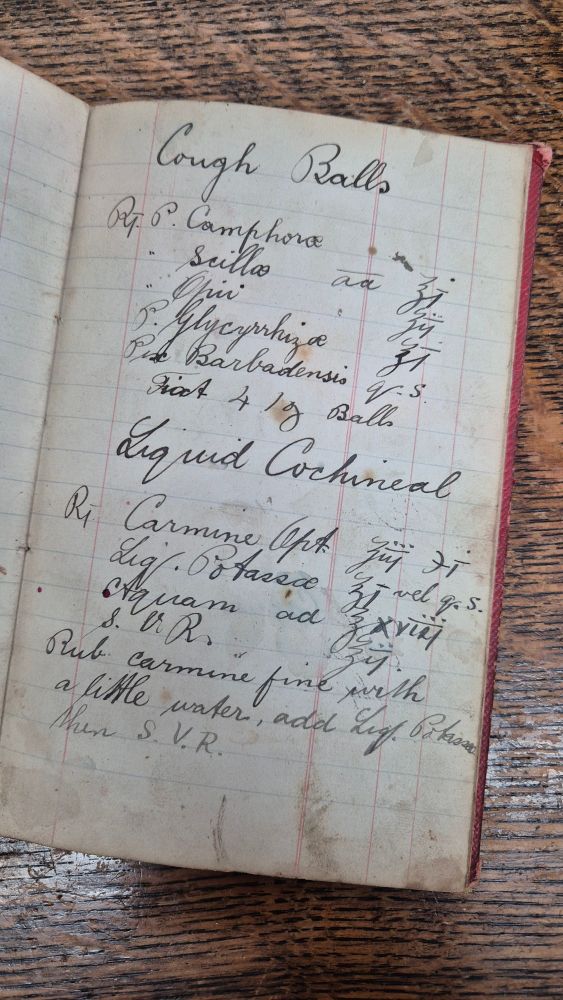 Cough Balls
℞ P. Camphoræ
" Scillæ aa ʒj
" Opii ʒij
P. Glycyrrhizæ ʒj
Pix Barbadensis q.s.
Fiat 4 1oz Balls
Liquid Cochineal
℞ Carmine Opt ʒiij ℈j
Liq. Potassæ ℥j vel q.s.
Aquam ad ℥xviij
S. V. R. ℥ij
Rub carmine fine with
a little water, add Liq. Potassæ
then S. V. R.